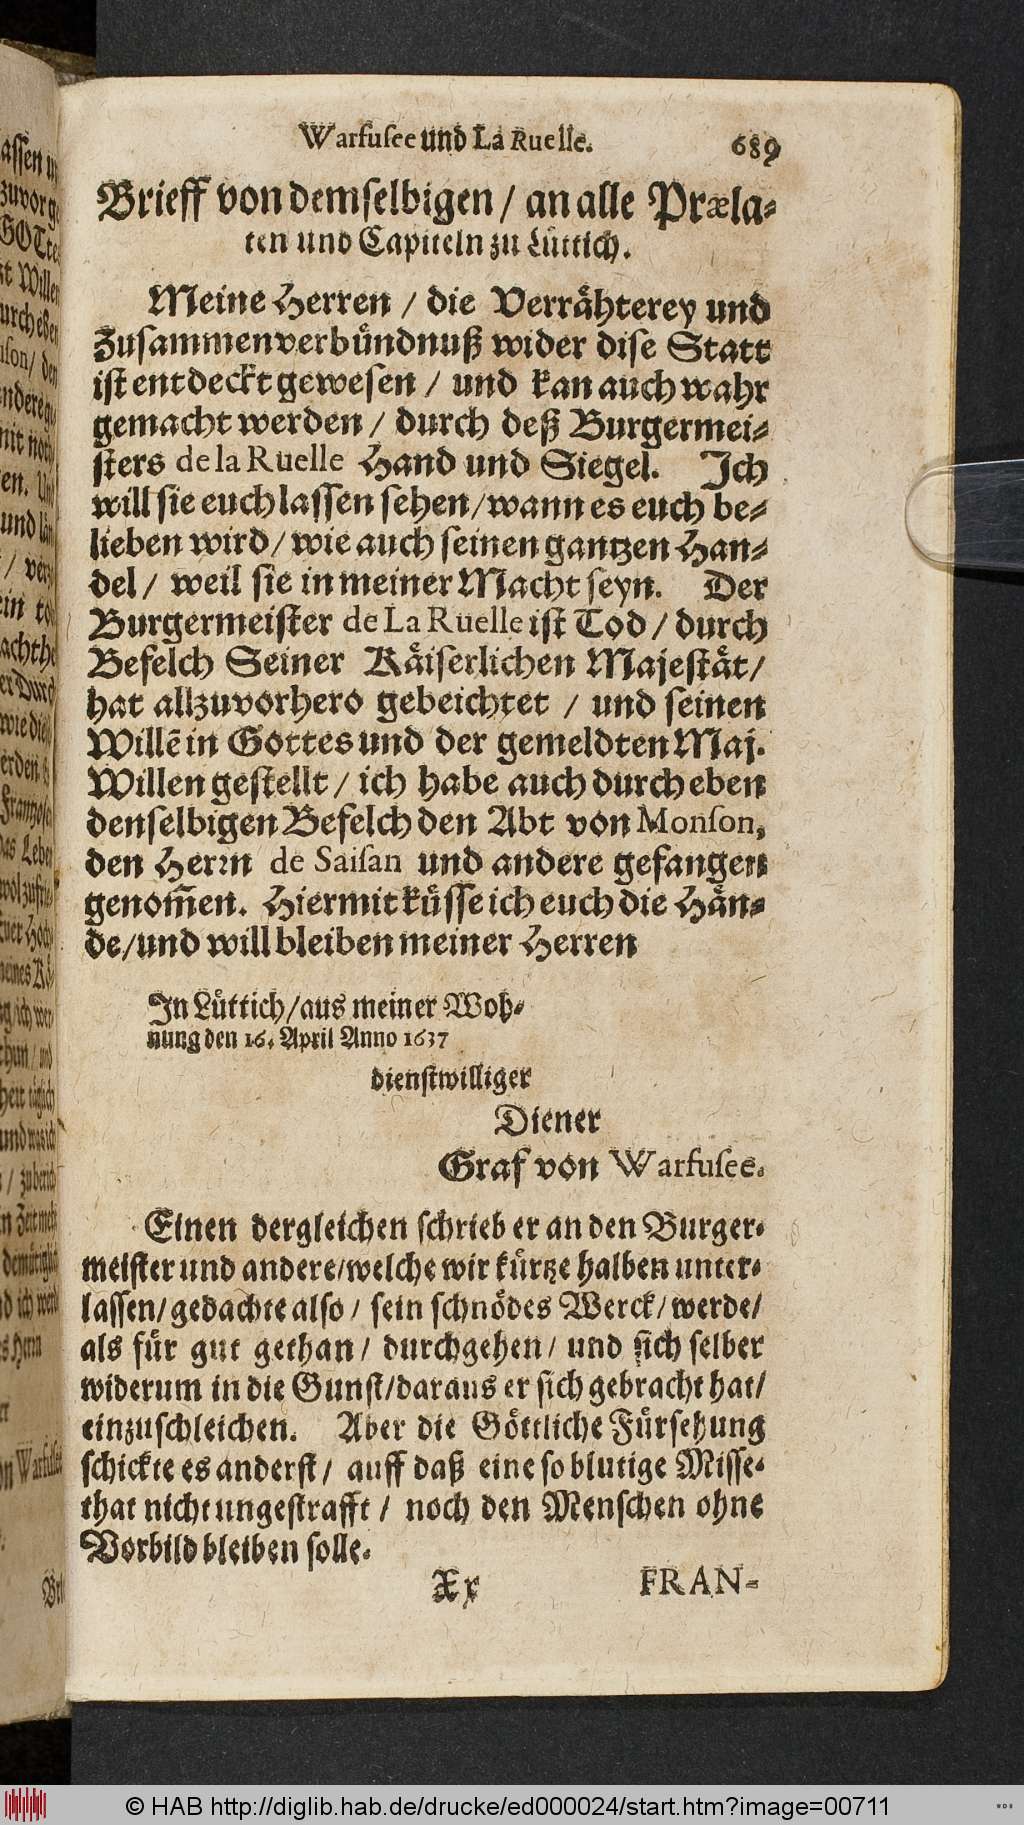 Warfusee und La Ruelle. 689
Brieff von demselbigen / an alle Præla-
ten und Capiteln zu Lüttich.
Meine Herren / die Verrähterey und
Zusammenverbündnuß wider dise Statt
ist entdeckt gewesen / und kan auch wahr
gemacht werden / durch deß Burgermei-
sters de la Ruelle Hand und Siegel. Ich
will sie euch lassen sehen / wann es euch be-
lieben wird / wie auch seinen gantzen Han-
del / weil sie in meiner Macht seyn. Der
Burgermeister de La Ruelle ist Tod / durch
Befelch Seiner Käiserlichen Majestät /
hat allzuvorhero gebeichtet / und seinen
Willē in Gottes und der gemeldten Maj.
Willen gestellt / ich habe auch durch eben
denselbigen Befelch den Abt von Monson,
den Herrn de Saisan und andere gefangen
genom̃en. Hiermit küsse ich euch die Hän-
de / und will bleiben meiner Herren
In Lüttich / aus meiner Woh-
nung den 16. April Anno 1637
dienstwilliger
Diener
Graf von Warfusee.
Einen dergleichen schrieb er an den Burger-
meister und andere / welche wir kürtze halben unter-
lassen / gedachte also / sein schnödes Werck / werde /
als für gut gethan / durchgehen / und sich selber
widerum in die Gunst / daraus er sich gebracht hat /
einzuschleichen. Aber die Göttliche Fürsehung
schickte es anderst / auff daß eine so blutige Misse-
that nicht ungestrafft / noch den Menschen ohne
Vorbild bleiben solle.
Xx FRAN-
© HAB http://diglib.hab.de/drucke/ed000024/start.htm?image=00711